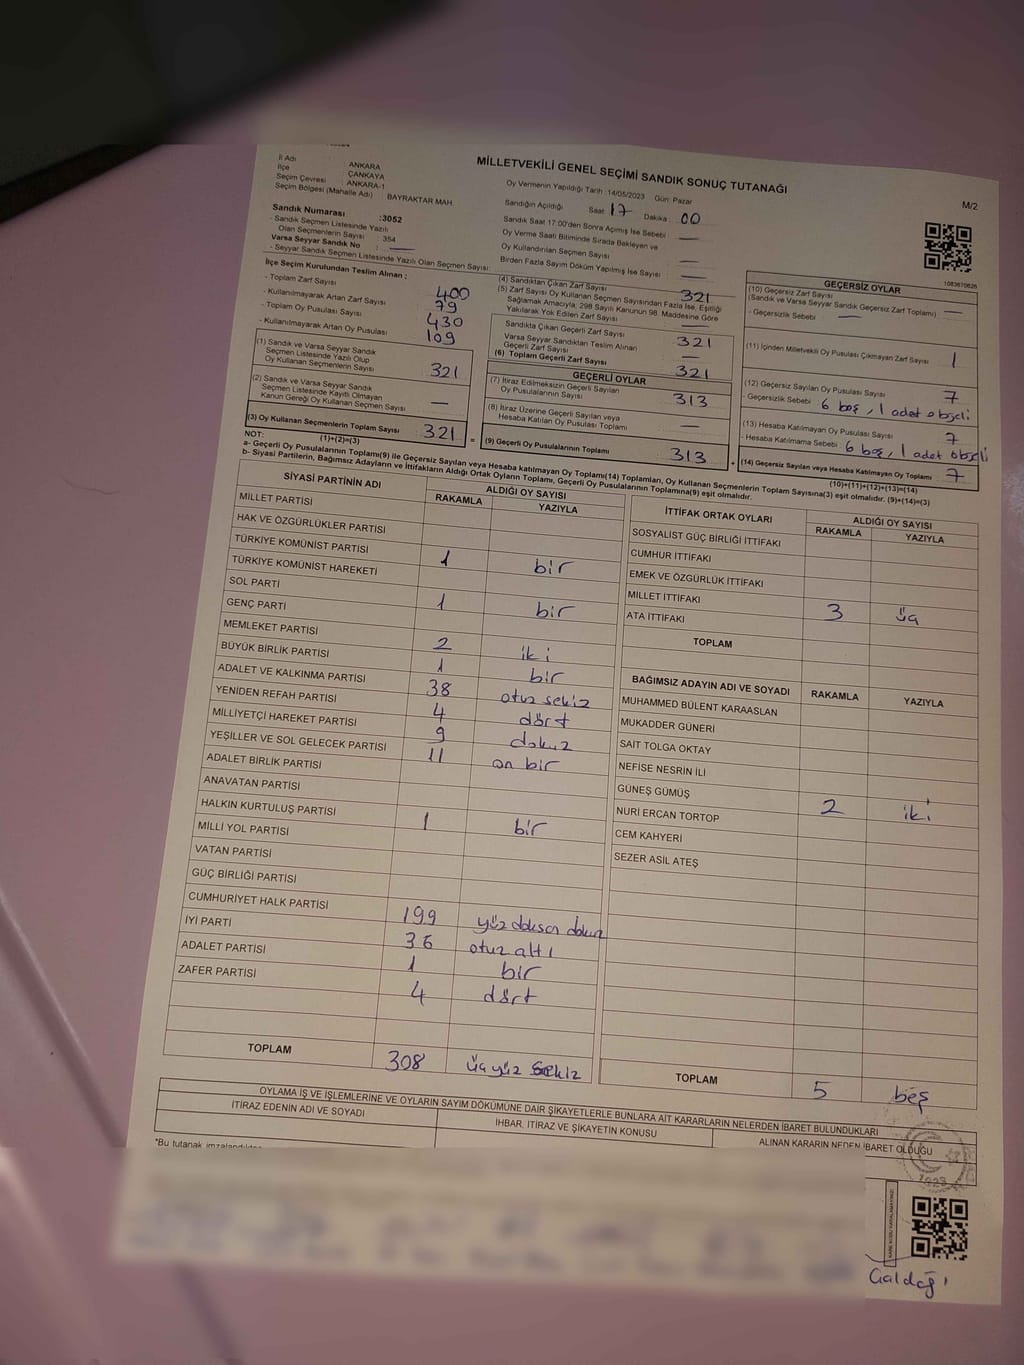 MİLLETVEKİLİ GENEL SEÇİMİ SANDIK SONUÇ TUTANAĞI
M/2
İl Adı ANKARA
İlçe ÇANKAYA
Seçim Çevresi : ANKARA-1
Seçim Bölgesi (Mahalle Adı) BAYRAKTAR MAH.
Sandık Numarası :3052
- Sandık Seçmen Listesinde Yazılı
Olan Seçmenlerin Sayısı : 354
Varsa Seyyar Sandık No : —
- Seyyar Sandık Seçmen Listesinde Yazılı Olan Seçmen Sayısı:
Oy Vermenin Yapıldığı Tarih :14/05/2023 Gün: Pazar
Sandığın Açıldığı Saat 17 Dakika : 00
Sandık Saat 17:00'den Sonra Açılmış İse Sebebi —
Oy Verme Saati Bitiminde Sırada Bekleyen ve
Oy Kullandırılan Seçmen Sayısı —
Birden Fazla Sayım Döküm Yapılmış İse Sayısı —
1083670626
İlçe Seçim Kurulundan Teslim Alınan :
- Toplam Zarf Sayısı 400
- Kullanılmayarak Artan Zarf Sayısı 79
- Toplam Oy Pusulası Sayısı 430
- Kullanılmayarak Artan Oy Pusulası 109
(1) Sandık ve Varsa Seyyar Sandık
Seçmen Listesinde Yazılı Olup
Oy Kullanan Seçmenlerin Sayısı 321
(2) Sandık ve Varsa Seyyar Sandık
Seçmen Listesinde Kayıtlı Olmayan
Kanun Gereği Oy Kullanan Seçmen Sayısı —
(3) Oy Kullanan Seçmenlerin Toplam Sayısı 321
(1)+(2)=(3)
(4) Sandıktan Çıkan Zarf Sayısı 321
(5) Zarf Sayısı Oy Kullanan Seçmen Sayısından Fazla İse, Eşitliği
Sağlamak Amacıyla, 298 Sayılı Kanunun 98. Maddesine Göre
Yakılarak Yok Edilen Zarf Sayısı —
Sandıkta Çıkan Geçerli Zarf Sayısı 321
Varsa Seyyar Sandıktan Teslim Alınan
Geçerli Zarf Sayısı —
(6) Toplam Geçerli Zarf Sayısı 321
GEÇERLİ OYLAR
(7) İtiraz Edilmeksizin Geçerli Sayılan
Oy Pusulalarının Sayısı 313
(8) İtiraz Üzerine Geçerli Sayılan veya
Hesaba Katılan Oy Pusulası Toplamı —
= (9) Geçerli Oy Pusulalarının Toplamı 313 +
GEÇERSİZ OYLAR
(10) Geçersiz Zarf Sayısı
(Sandık ve Varsa Seyyar Sandık Geçersiz Zarf Toplamı) —
- Geçersizlik Sebebi —
(11) İçinden Milletvekili Oy Pusulası Çıkmayan Zarf Sayısı 1
(12) Geçersiz Sayılan Oy Pusulası Sayısı 7
- Geçersizlik Sebebi 6 boş, 1 adet
(13) Hesaba Katılmayan Oy Pusulası Sayısı 7
- Hesaba Katılmama Sebebi 6 boş, 1 adet
(14) Geçersiz Sayılan veya Hesaba Katılmayan Oy Toplamı 7
(10)+(11)+(12)+(13)=(14)
NOT:
a- Geçerli Oy Pusulalarının Toplamı(9) ile Geçersiz Sayılan veya Hesaba katılmayan Oy Toplamı(14) Toplamları, Oy Kullanan Seçmenlerin Toplam Sayısına(3) eşit olmalıdır. (9)+(14)=(3)
b- Siyasi Partilerin, Bağımsız Adayların ve İttifakların Aldığı Ortak Oyların Toplamı, Geçerli Oy Pusulalarının Toplamına(9) eşit olmalıdır.
SİYASİ PARTİNİN ADI ALDIĞI OY SAYISI
RAKAMLA YAZIYLA
MİLLET PARTİSİ
HAK VE ÖZGÜRLÜKLER PARTİSİ
TÜRKİYE KOMÜNİST PARTİSİ
TÜRKİYE KOMÜNİST HAREKETİ 1 bir
SOL PARTİ
GENÇ PARTİ 1 bir
MEMLEKET PARTİSİ
BÜYÜK BİRLİK PARTİSİ 2 iki
ADALET VE KALKINMA PARTİSİ 1 bir
YENİDEN REFAH PARTİSİ 38 otuz sekiz
MİLLİYETÇİ HAREKET PARTİSİ 4 dört
YEŞİLLER VE SOL GELECEK PARTİSİ 9 dokuz
ADALET BİRLİK PARTİSİ 11 on bir
ANAVATAN PARTİSİ
HALKIN KURTULUŞ PARTİSİ
MİLLİ YOL PARTİSİ 1 bir
VATAN PARTİSİ
GÜÇ BİRLİĞİ PARTİSİ
CUMHURİYET HALK PARTİSİ
İYİ PARTİ 199 yüz doksan dokuz
ADALET PARTİSİ 36 otuz altı
ZAFER PARTİSİ 1 bir
4 dört
TOPLAM 308 üçyüz sekiz
İTTİFAK ORTAK OYLARI ALDIĞI OY SAYISI
RAKAMLA YAZIYLA
SOSYALİST GÜÇ BİRLİĞİ İTTİFAKI
CUMHUR İTTİFAKI
EMEK VE ÖZGÜRLÜK İTTİFAKI
MİLLET İTTİFAKI
ATA İTTİFAKI 3 üç
TOPLAM
BAĞIMSIZ ADAYIN ADI VE SOYADI RAKAMLA YAZIYLA
MUHAMMED BÜLENT KARAASLAN
MUKADDER GÜNERİ
SAİT TOLGA OKTAY
NEFİSE NESRİN İLİ
GÜNEŞ GÜMÜŞ
NURİ ERCAN TORTOP 2 iki
CEM KAHYERİ
SEZER ASİL ATEŞ
TOPLAM 5 beş
OYLAMA İŞ VE İŞLEMLERİNE VE OYLARIN SAYIM DÖKÜMÜNE DAİR ŞİKAYETLERLE BUNLARA AİT KARARLARIN NELERDEN İBARET BULUNDUKLARI
İTİRAZ EDENİN ADI VE SOYADI
İHBAR, İTİRAZ VE ŞİKAYETİN KONUSU
ALINAN KARARIN NEDEN İBARET OLDUĞU
1923
*Bu tutanak